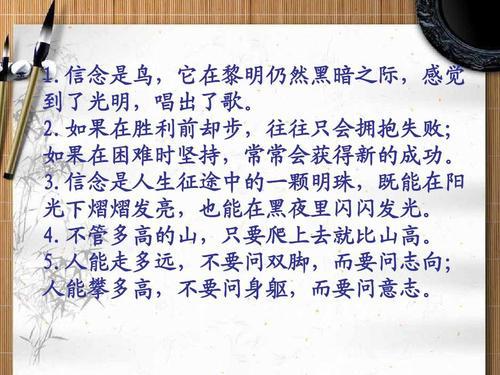 1. 信念是鸟，它在黎明仍然黑暗之际，感觉
到了光明，唱出了歌。
2. 如果在胜利前却步，往往只会拥抱失败；
如果在困难时坚持，常常会获得新的成功。
3. 信念是人生征途中的一颗明珠，既能在阳
光下熠熠发亮，也能在黑夜里闪闪发光。
4. 不管多高的山，只要爬上去就比山高。
5. 人能走多远，不要问双脚，而要问志向；
人能攀多高，不要问身躯，而要问意志。